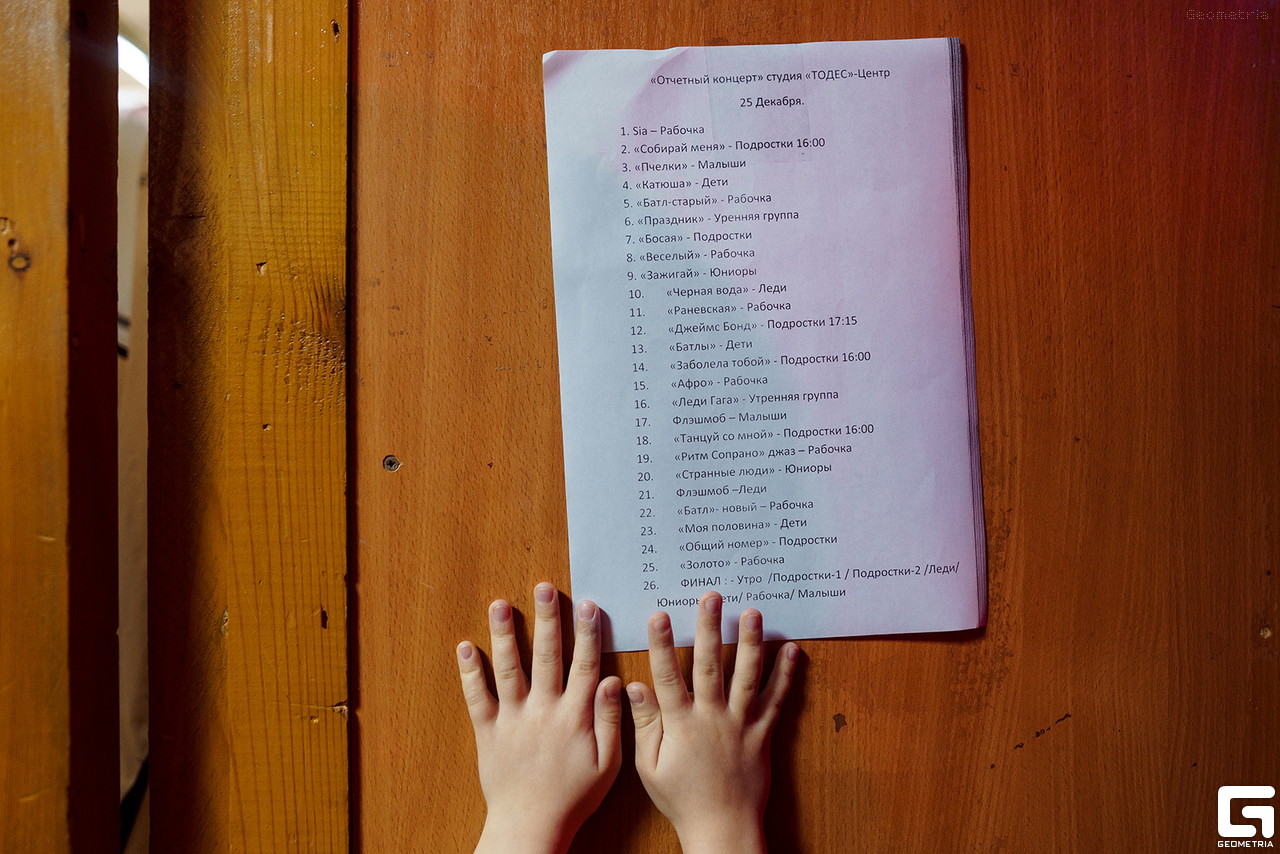 Geometria
«Отчетный концерт» студия «ТОДЕС»-Центр
25 Декабря.
1. Sia – Рабочка
2. «Собирай меня» - Подростки 16:00
3. «Пчелки» - Малыши
4. «Катюша» - Дети
5. «Батл-старый» - Рабочка
6. «Праздник» - Уренняя группа
7. «Босая» - Подростки
8. «Веселый» - Рабочка
9. «Зажигай» - Юниоры
10. «Черная вода» - Леди
11. «Раневская» - Рабочка
12. «Джеймс Бонд» - Подростки 17:15
13. «Батлы» - Дети
14. «Заболела тобой» - Подростки 16:00
15. «Афро» - Рабочка
16. «Леди Гага» - Утренняя группа
17. Флэшмоб – Малыши
18. «Танцуй со мной» - Подростки 16:00
19. «Ритм Сопрано» джаз – Рабочка
20. «Странные люди» - Юниоры
21. Флэшмоб –Леди
22. «Батл»- новый – Рабочка
23. «Моя половина» - Дети
24. «Общий номер» - Подростки
25. «Золото» - Рабочка
26. ФИНАЛ : - Утро /Подростки-1 / Подростки-2 /Леди/
Рабочка/ Малыши
GEOMETRIA